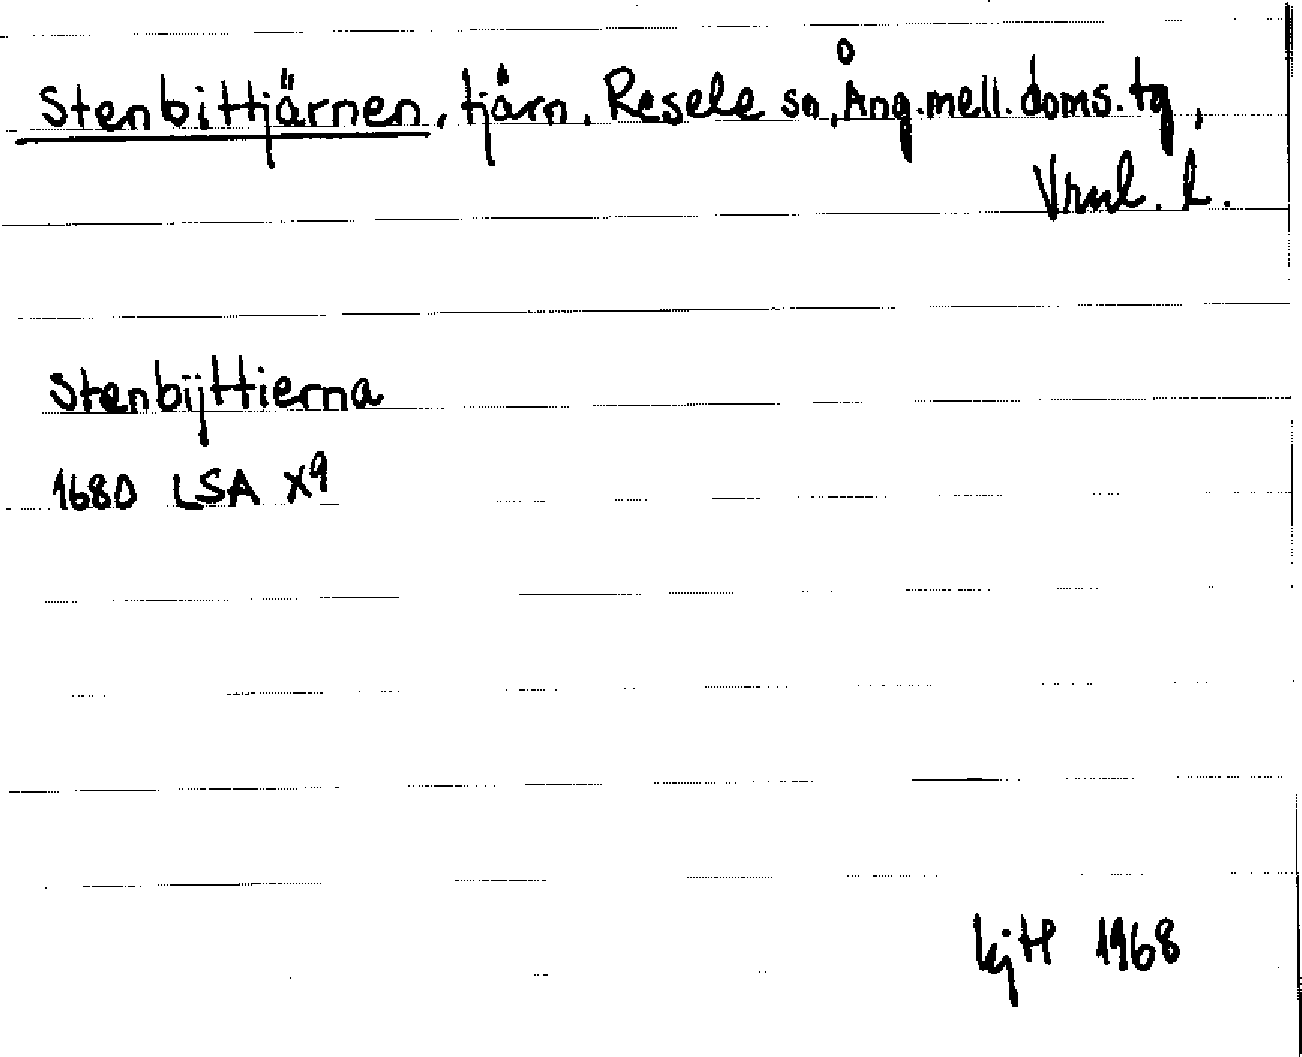 Stenbittjärnen, tjärn. Resele sn, Ång. mell. doms. tg,
Vrnl. l.
Stenbijttierna
1680 LSA X9
1968